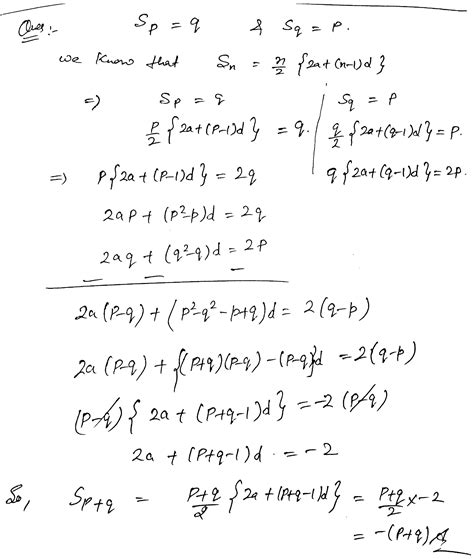 Ques:- Sp = q & Sq = P.
we know that Sn = n/2 {2a+(n-1)d}
=) Sp = q
P/2 {2a+(P-1)d} = q.
Sq = P
q/2 {2a+(q-1)d} = P.
q{2a+(q-1)d} = 2P.
=) P{2a+(P-1)d} = 2q
2aP + (P²-P)d = 2q
2aq + (q²-q)d = 2P
— — —
2a(P-q) + (P²-q²-P+q)d = 2(q-P)
2a(P-q) + {(P+q)(P-q) - (P-q)}d = 2(q-P)
(P-q){2a + (P+q-1)d} = -2(P-q)
2a + (P+q-1)d = -2
So, Sp+q = P+q/2 {2a+(P+q-1)d} = P+q/2 x -2
= -(P+q)